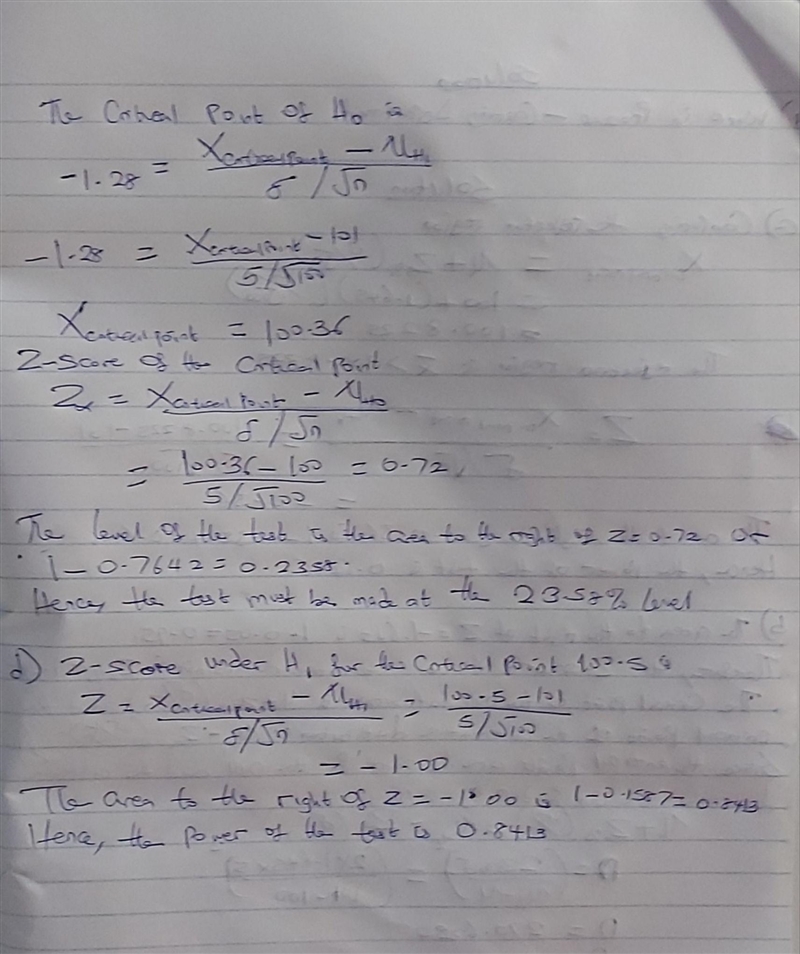 The Critical Point of H₀ is
-1.28 = (X critical point - μ_H₁) / (δ/√n)
-1.28 = (X critical point - 101) / (5/√100)
X critical point = 100.36
Z-score of the Critical Point
Z_α = (X critical point - μ_H₀) / (δ/√n)
= (100.36 - 100) / (5/√100) = 0.72
The level of the test is the area to the right of Z = 0.72 or
1 - 0.7642 = 0.2358.
Hence, the test must be made at the 23.58% level
d) Z-score under H₁ for the Critical Point 100.5 is
Z = (X critical point - μ_H₁) / (δ/√n) = (100.5 - 101) / (5/√100)
= -1.00
The area to the right of Z = -1.00 is 1 - 0.1587 = 0.8413
Hence, the power of the test is 0.8413